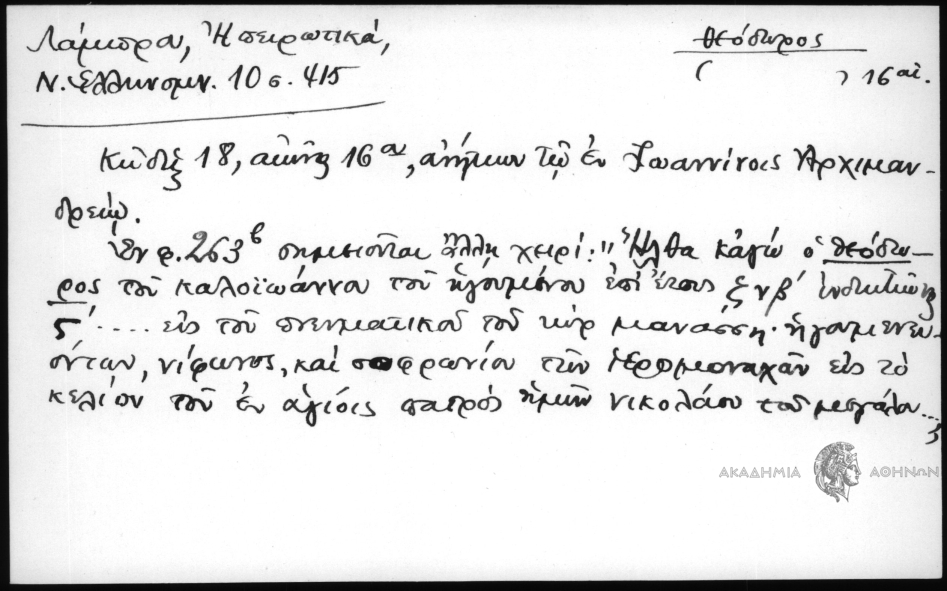 Λάμπρου, Ἠπειρωτικά, Θεόδωρος
Ν. Ἑλληνομν. 10 σ. 415 ( ) 16 αἰ.
Κῶδιξ 18, αἰῶνος 16ου, ἀνήκων τῷ ἐν Ἰωαννίνοις Ἀρχιμαν-
δρείῳ.
Ἐν φ. 263β σημειοῦται ἄλλῃ χειρί: "Ἦλθα καγὼ ὁ θεόδω-
ρος τοῦ καλοϊωάννου τοῦ ἡγουμένου ἐπὶ ἔτους ζνβ' ἰνδικτιῶνος
ς' .... εἰς τοῦ πνευματικοῦ τοῦ κὺρ μανάσση. ἡγουμενευ-
όντων, νίφωνος, καὶ σωφρονίου τῶν ἱερομοναχῶν εἰς τὸ
κελίον τοῦ ἐν ἁγίοις πατρὸς ἡμῶν νικολάου τοῦ μεγάλου...
ΑΚΑΔΗΜΙΑ ΑΘΗΝΩΝ